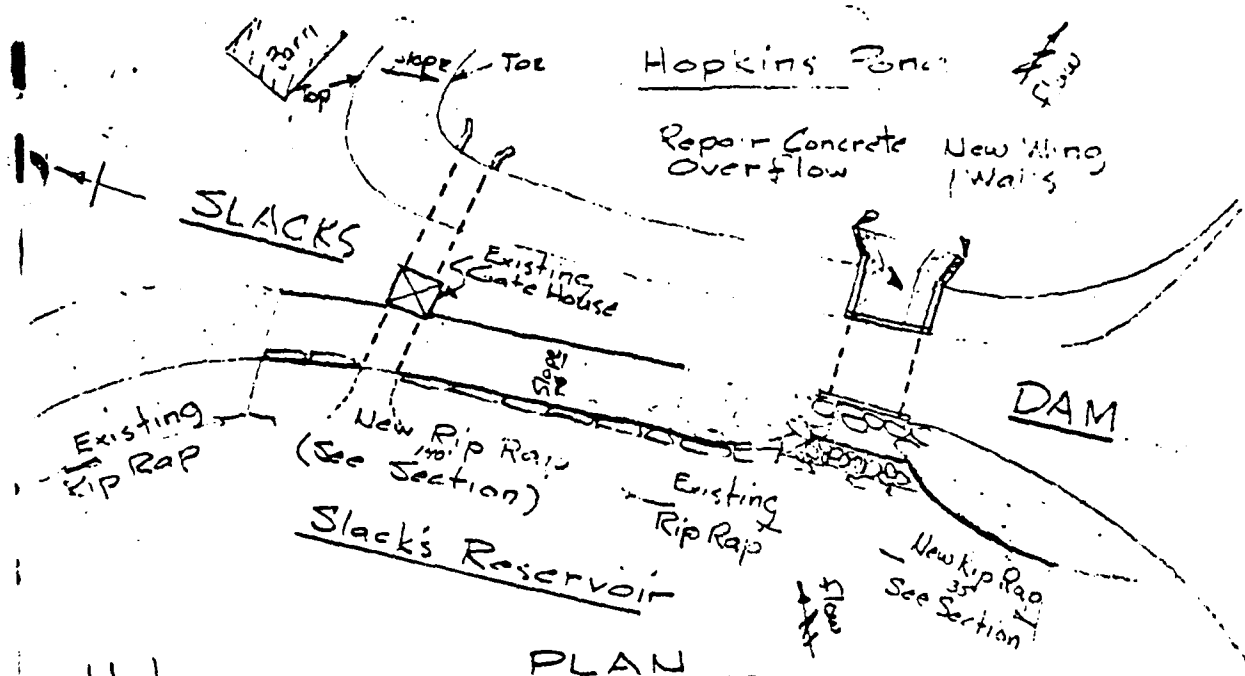 Barn
Top
Slope
Toe
Hopkins Pond
Flow
Repair Concrete
Overflow
New Wing
Walls
SLACKS
Existing
Gate House
Slope
DAM
Existing
Rip Rap
New Rip Rap
140'
(See Section)
Existing
Rip Rap
Slack's Reservoir
New Rip Rap
35'
See Section
Flow
PLAN